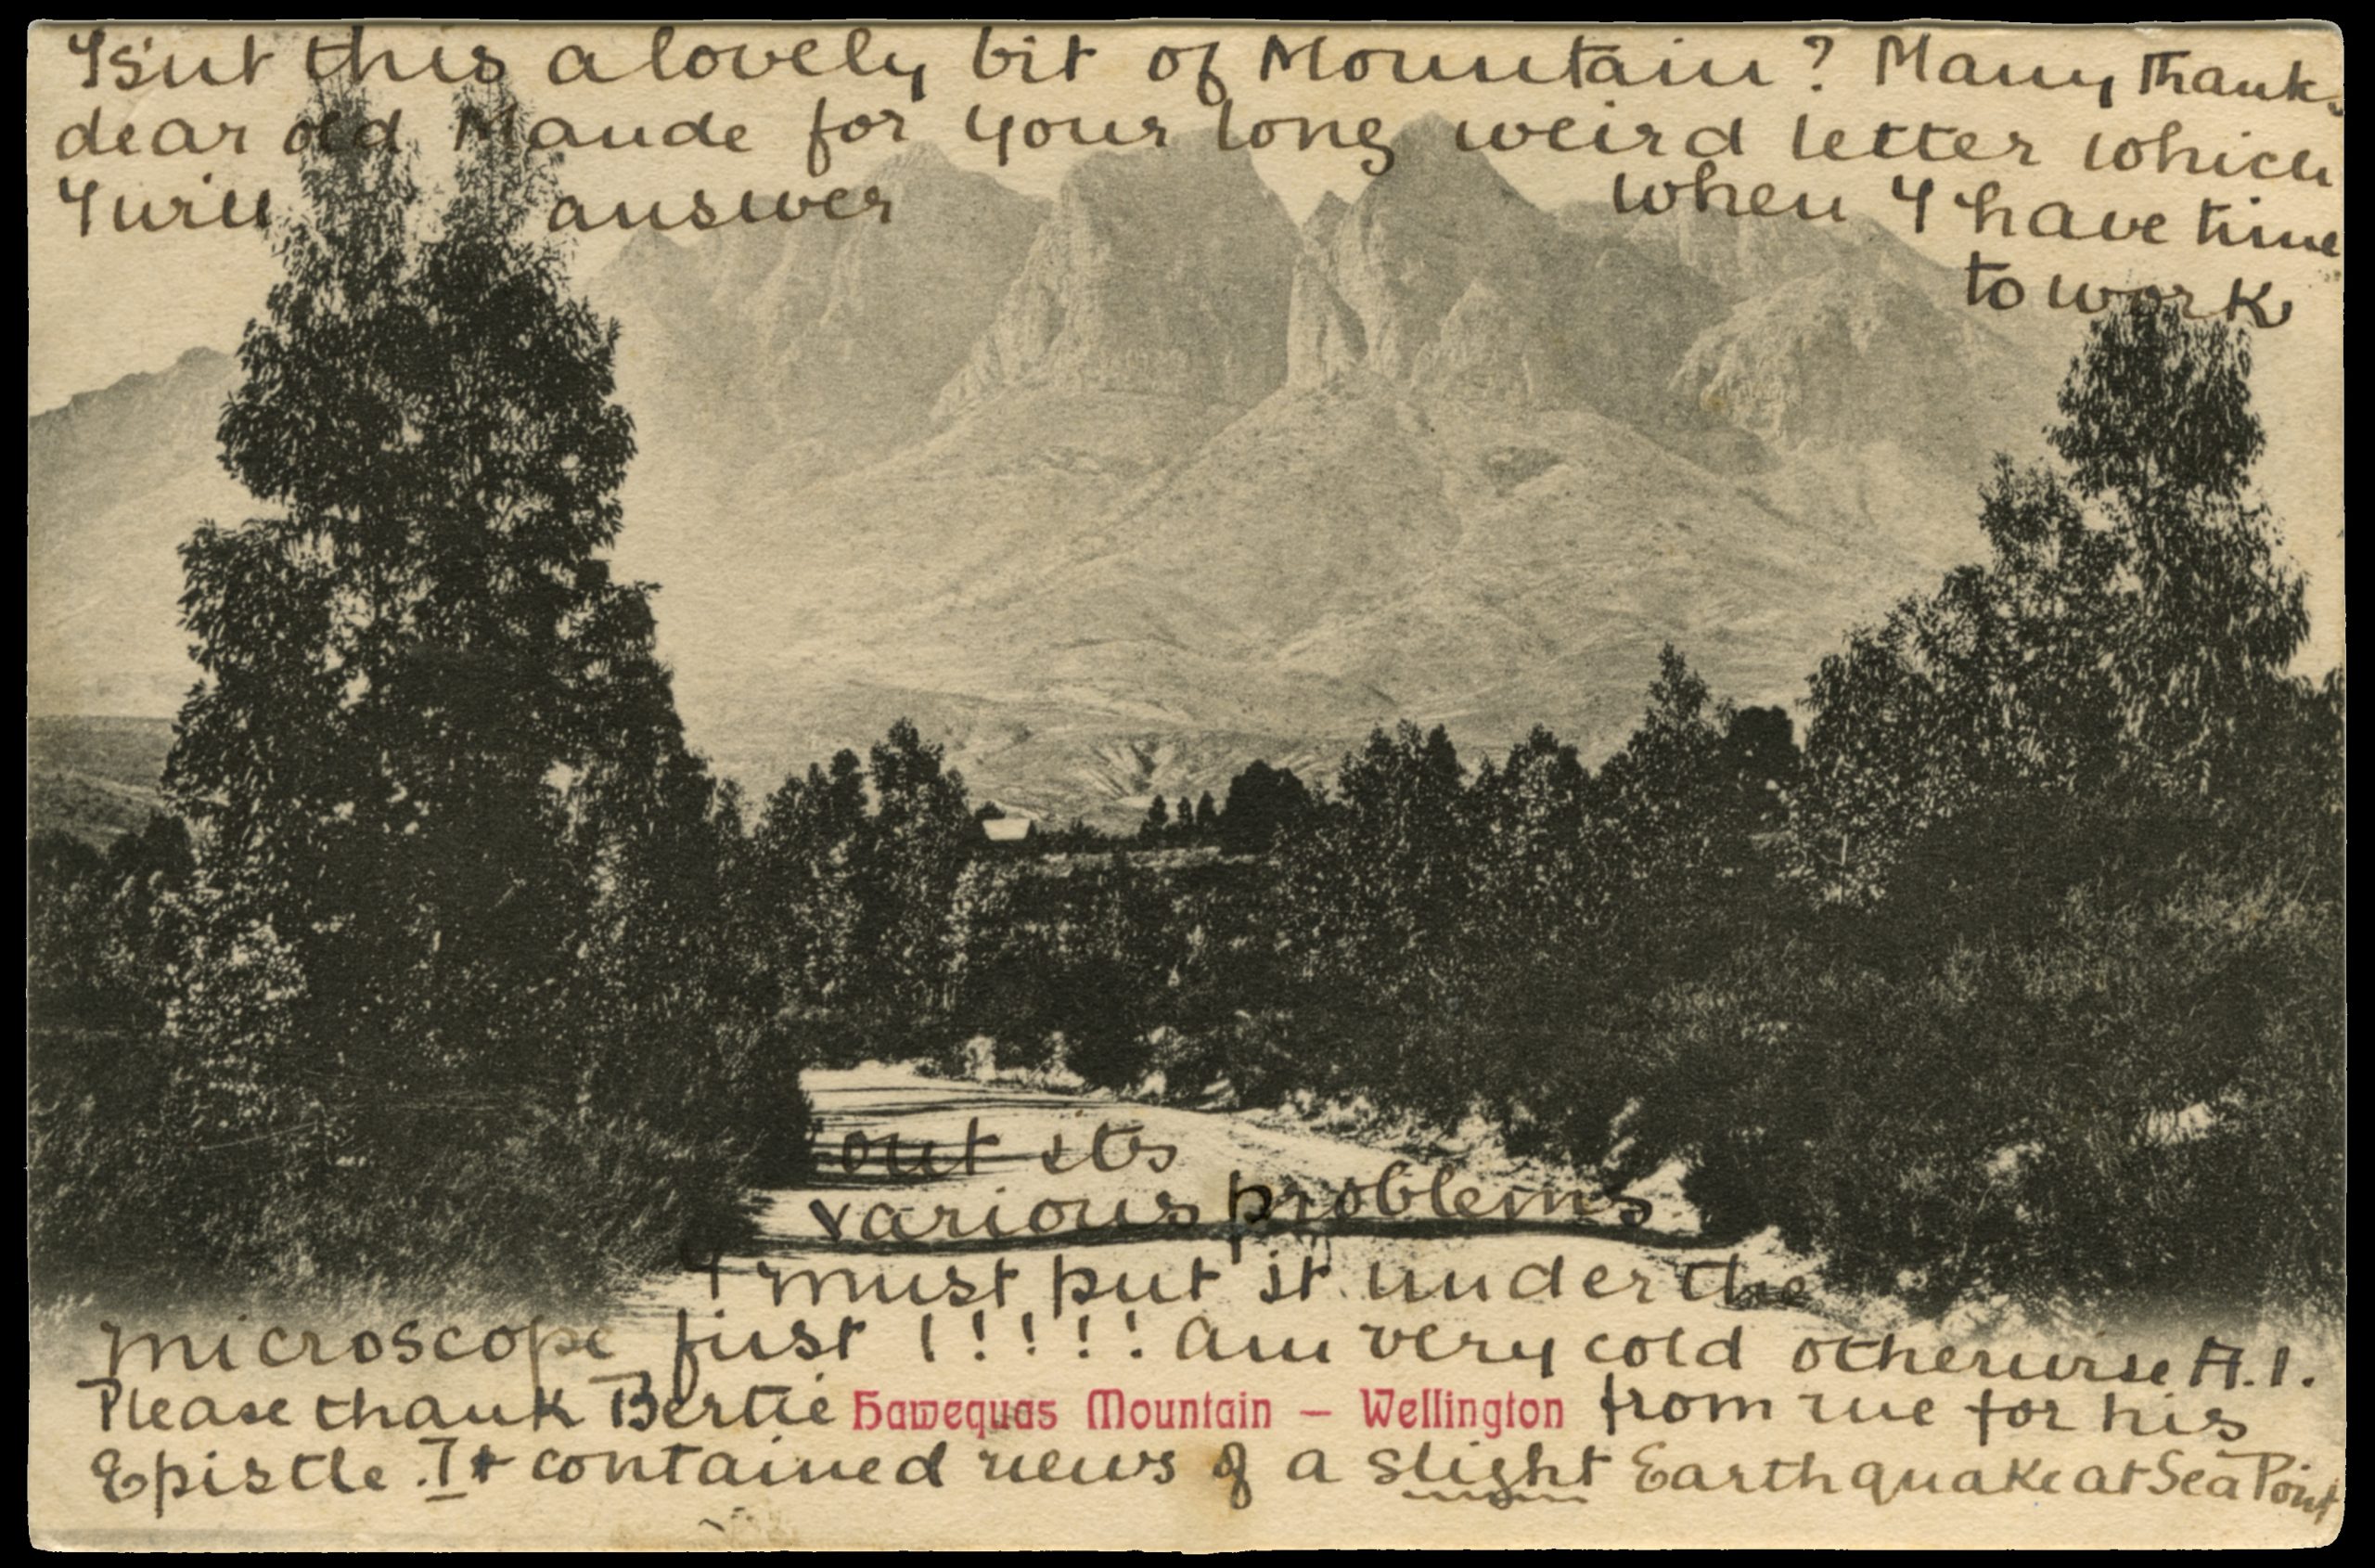 Isn't this a lovely bit of Mountain? Many Thanks
dear old Maude for your long weird letter which
I will answer when I have time
to work
out its
various problems
I must put it under the
microscope first !!!!! Am very cold otherwise A.1.
Please thank Bertie from me for his
Hawequas Mountain – Wellington
Epistle. It contained news of a slight Earthquake at Sea Point